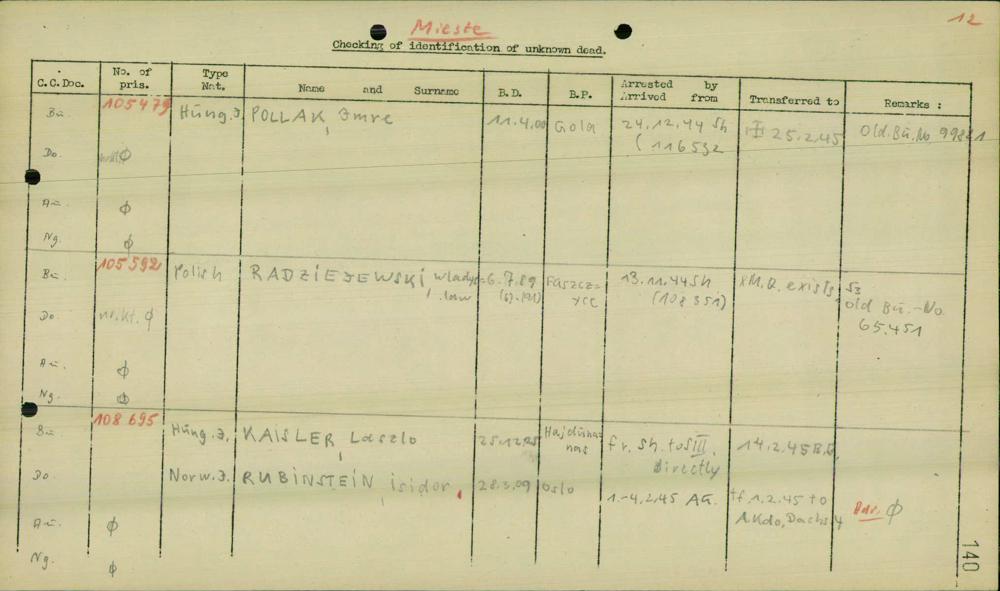 Mieste 12
Checking of identification of unknown dead.
C.C.Doc. No. of pris. Type Nat. Name and Surname B.D. B.P. Arrested by Arrived from Transferred to Remarks :
Bu. 105479 Hung.J. POLLAK, Imre 11.4.00 Gola 24.12.44 Sh III 25.2.45 Old.Bu.No. 99841
(116592
Do. ϕ
Au. ϕ
Ng. ϕ
Bu. 105592 Polish RADZIEJEWSKI, Wladys= 6.7.89 Faszcz= 13.11.44 Sh M.Q. exists, Sz
law yce (108351) old Bu.-No.
Do. nr.kt. ϕ 65.451
Au. ϕ
Ng. ϕ
108695
Bu. Hung.J. KAISLER, Laszlo 25.12.25 Hajdúna= nas fr. Sh. to S III, 14.2.45 B.B.
directly
Do. Norw.J. RUBINSTEIN, isidor, 28.3.09 Oslo 1.-4.2.45 AG. tf. 1.2.45 to ϕ
A.Kdo, Dachs 4
Au. ϕ
Ng. ϕ
140